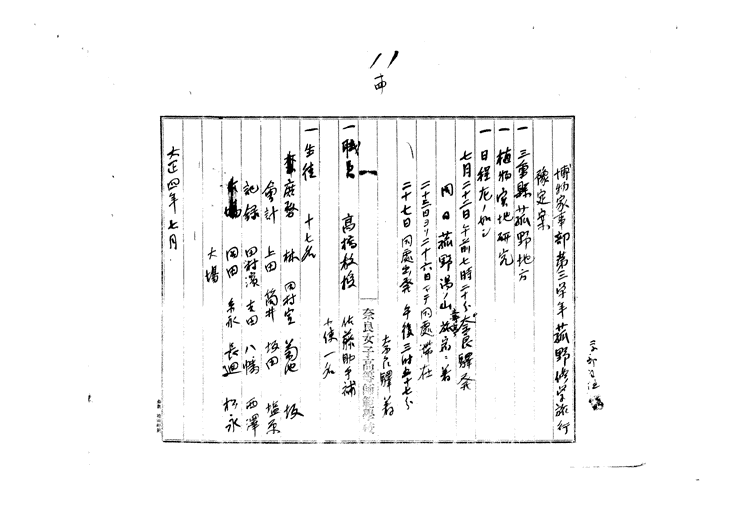 博物家事部第三学年菰野修学旅行
豫定案
一 三重縣菰野地方
一 植物実地研究
一 日程左ノ如シ
七月二十二日午前七時二十分奈良驛発
同日菰野湯ノ山旅宿ニ着
二十三日ヨリ二十六日マデ同處滞在
二十七日同處出発 午後三時五十七分
奈良驛着
奈良女子高等師範學校
一 職員 高橋教授 佐藤助手補
小使一名
一 生徒 十七名
林 田村 菊池 坂
會計 上田 筒井 坂田 塩原
記録 田村 吉田 八幡 西澤
岡田 末永 長廻 松永
大場
大正四年七月